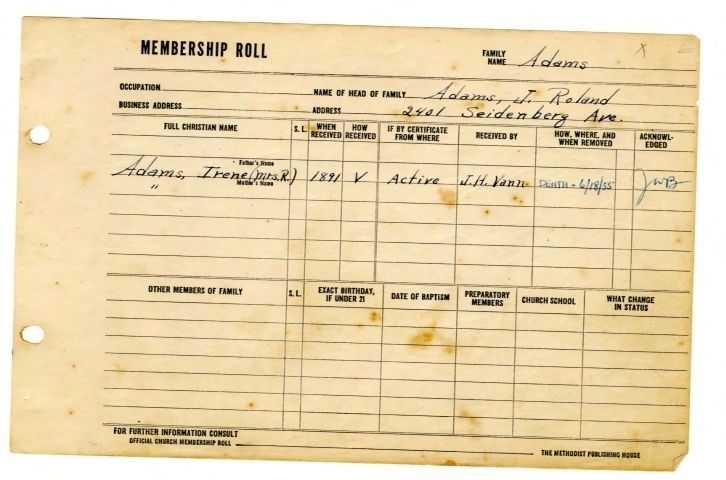 MEMBERSHIP ROLL FAMILY NAME Adams
X
OCCUPATION NAME OF HEAD OF FAMILY Adams, J. Roland
BUSINESS ADDRESS ADDRESS 2401 Seidenberg Ave.
FULL CHRISTIAN NAME S. L. WHEN RECEIVED HOW RECEIVED IF BY CERTIFICATE FROM WHERE RECEIVED BY HOW, WHERE, AND WHEN REMOVED ACKNOWL- EDGED
Father's Name
Adams, Irene (Mrs. R.) 1891 V Active J.H. Vann DEATH - 6/18/55 JWB
" Mother's Name
OTHER MEMBERS OF FAMILY S. L. EXACT BIRTHDAY, IF UNDER 21 DATE OF BAPTISM PREPARATORY MEMBERS CHURCH SCHOOL WHAT CHANGE IN STATUS
FOR FURTHER INFORMATION CONSULT
OFFICIAL CHURCH MEMBERSHIP ROLL THE METHODIST PUBLISHING HOUSE